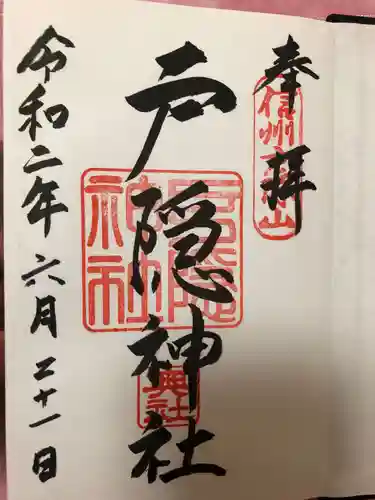 奉拝
信州戸隠山
戸隠神社
戸隠神社
奥社
令和二年六月二十一日